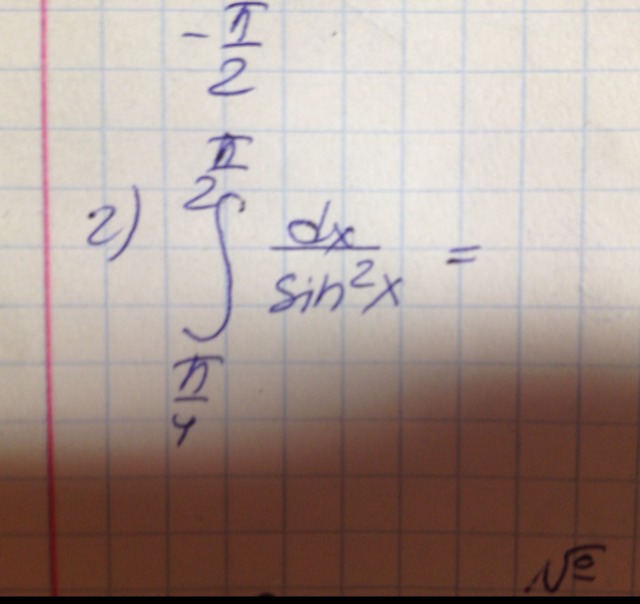 -π/2
2) ∫_{π/4}^{π/2} dx/sin²x =